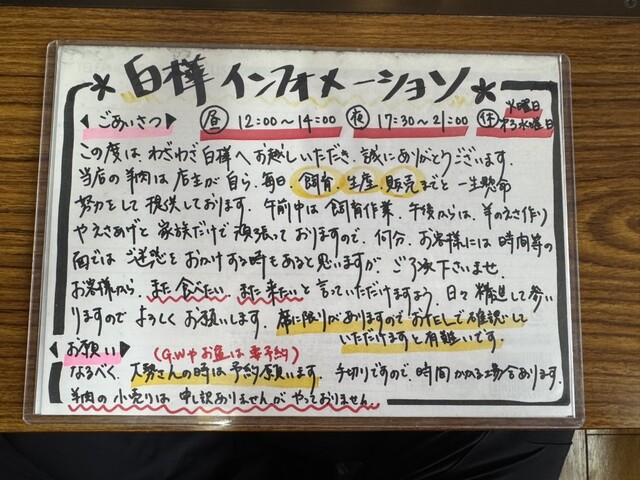 *白樺インフォメーション*
◀ごあいさつ▶ 昼 12:00～14:00 夜 17:30～21:00 休 火曜日
第3水曜日
この度は、わざわざ白樺へお越しいただき、誠にありがとうございます。
当店の羊肉は店主が自ら、毎日、飼育、生産、販売までと一生懸命
努力をして提供しております。午前中は飼育作業、午後からは、羊のえさ作り
やえさあげと家族だけで頑張っておりますので、何分、お客様には時間等の
面ではご迷惑をおかけする時もあると思いますが、ご了承下さいませ。
お客様から、また食べたい、また来たいと言っていただけますよう、日々精進して参い
りますのでよろしくお願いします。席に限りがありますのでお だしで確認して
いただけますと有難いです。
◀お願い▶ (G.Wやお盆は要予約)
なるべく、大勢さんの時は予約願います。手切りですので、時間かかる場合あります。
羊肉の小売りは申し訳ありませんがやっておりません。